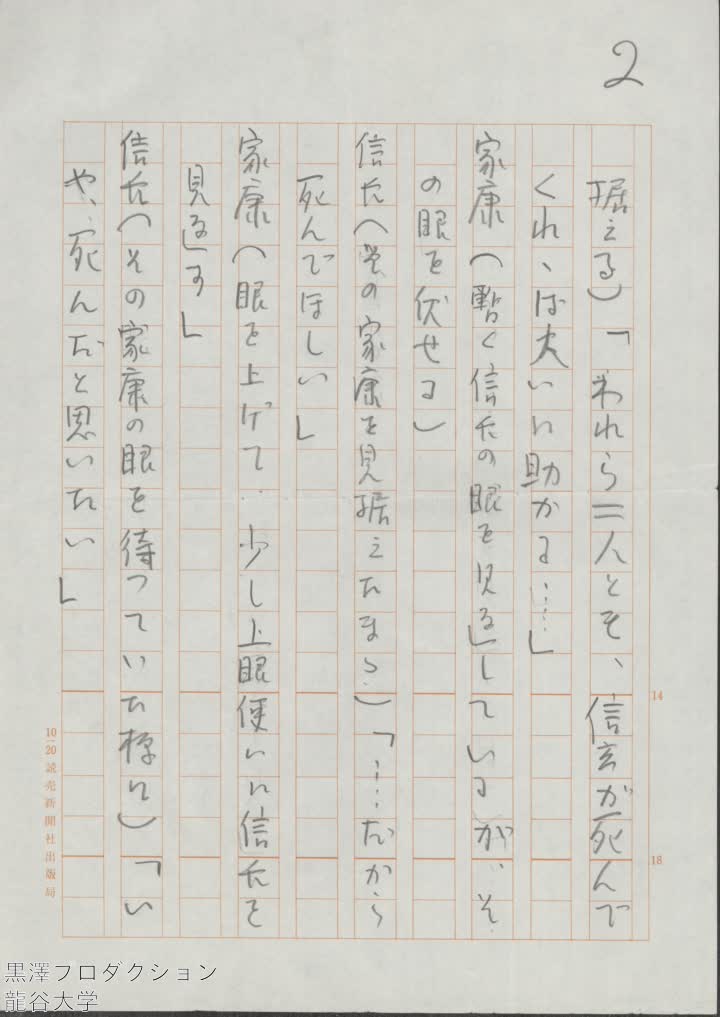 2
据える)「われら二人とも、信玄が死んで
くれゝば大いに助かる……」
家康(暫く信長の眼を見返しているが、そ
の眼を伏せる)
信長(その家康を見据えたまゝ)「……だから
死んでほしい」
家康(眼を上げて、少し上眼使いに信長を
見返す」
信長(その家康の眼を待っていた様に)「い
や、死んだと思いたい」
14
18
10―20 読売新聞社出版局
黒澤プロダクション
龍谷大学